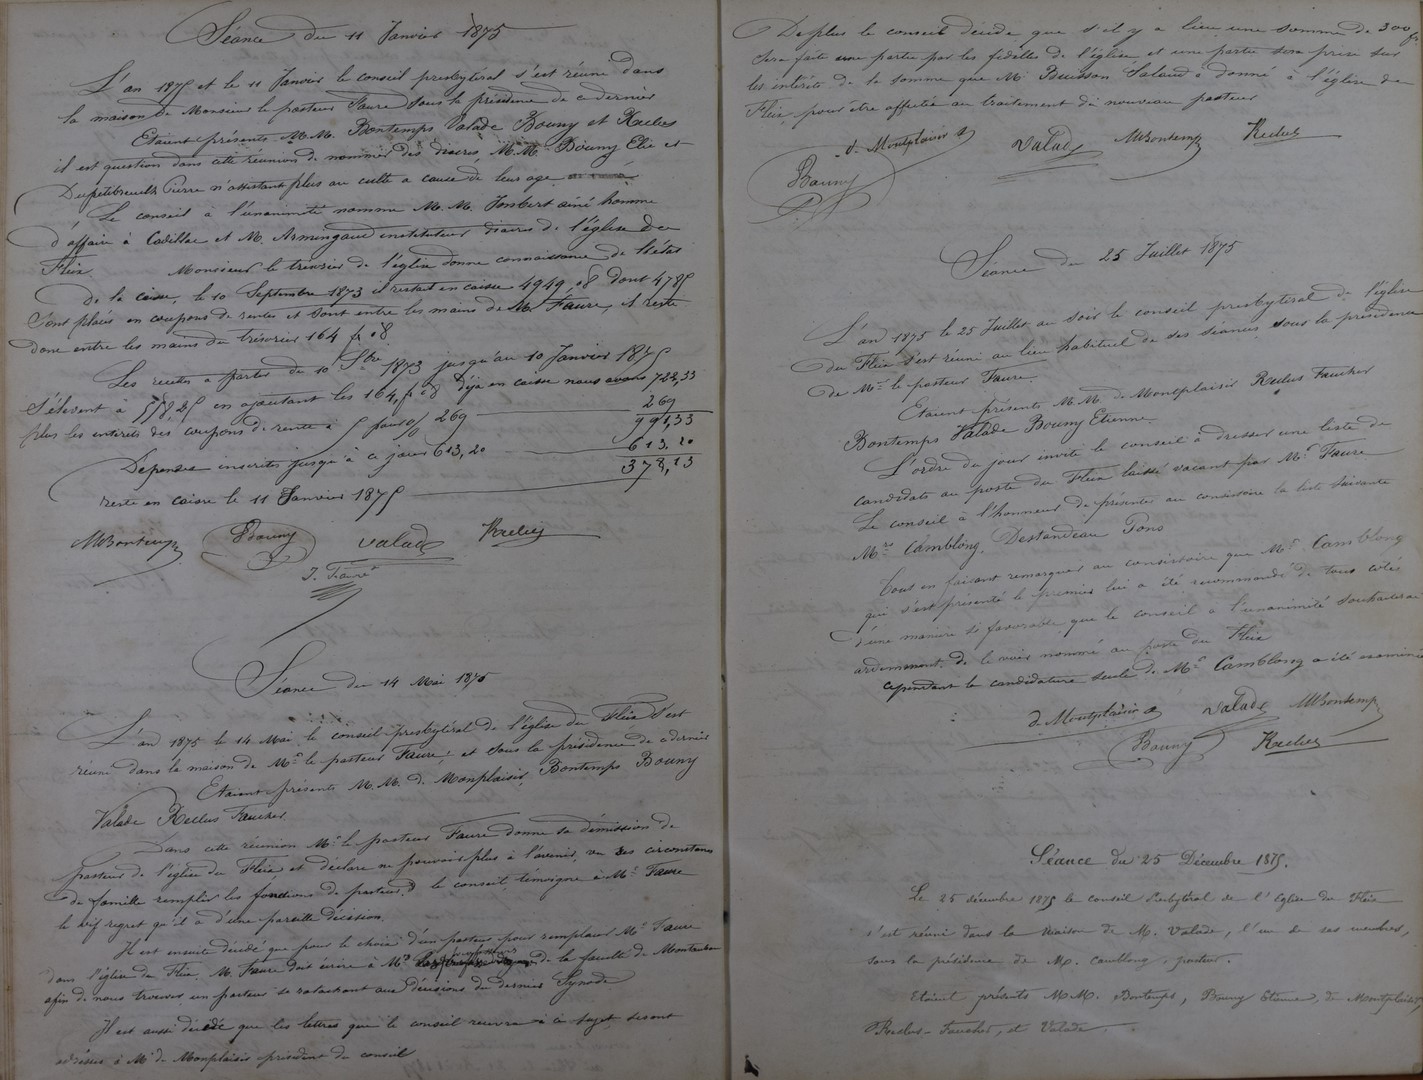 Séance du 11 Janvier 1875
L'an 1875 et le 11 Janvier le conseil presbytéral s'est réuni dans
la maison de Monsieur le pasteur Faure sous la présidence de ce dernier
Etaient présents M.M. Bontemps Valade Bouny et Reclus
il est question dans cette réunion de nommer des diacres, M.M. Bouny Elie et
Pierre n'assistant plus au culte a cause de leur âge
Le conseil à l'unanimité nomme M.M. Jonbert ainé homme
d'affaire à Cadillac et M. Armingaud instituteur diacres de l'église du
Fleix Monsieur le trésorier de l'église donne connaissance de l'état
de la caisse, le 10 Septembre 1873 il restait en caisse 4949,08 dont 4785
sont placés en coupons de rentes et sont entre les mains de Mr Faure, il reste
donc entre les mains du trésorier 164 fr 08
Les recettes a partir du 10 Sbre 1873 jusqu'au 10 Janvier 1875
s'élevent à 558,25 en ajoutant les 164, fr 08 déjà en caisse nous avons 722,33
plus les intérêts des coupons de rente à 5 pour % 269 269
991,33
Dépenses inscrites jusqu'à ce jour 613,20 613,20
reste en caisse le 11 Janvier 1875 378,13
MBontemps Bouny Valade Reclus
J. Faure
Séance du 14 Mai 1875
L'an 1875 le 14 Mai le conseil presbytéral de l'église du Fleix s'est
réuni dans la maison de Mr le pasteur Faure, et sous la présidence de ce dernier
Etaient présents M.M. de Monplaisir, Bontemps Bouny
Valade Reclus Faucher
Dans cette réunion Mr le pasteur Faure donne sa démission de
pasteur de l'église du Fleix, et déclare ne pouvoir plus à l'avenir, vu ses circonstances
de famille remplir les fonctions de pasteur le conseil témoigne à Mr Faure
le vif regret qu'il a d'une pareille décision.
Il est ensuite décidé que pour le choix d'un pasteur pour remplacer Mr Faure
dans l'église du Fleix, M. Faure doit écrire à Mrs de la faculté de Montauban
afin de nous trouver un pasteur se ratachant aux décisions du dernier Synode
Il est aussi décidé que les lettres que le conseil recevra à ce sujet seront
adréssées à Mr de Monplaisir président du conseil
De plus le conseil décide que s'il y a lieu une somme de 300 fr
sera faite une partie par les fidèles de l'église et une partie sera prise sur
les intérêts de la somme que Mr Buisson a donné à l'église du
Fleix pour être affectée au traitement du nouveau pasteur
d. Montplaisir Valade MBontemps Reclus
Bouny
Séance du 25 Juillet 1875
L'an 1875 le 25 Juillet au soir le conseil presbytéral de l'église
du Fleix s'est réuni au lieu habituel de ses séances sous la présidence
de Mr le pasteur Faure.
Etaient présents M.M. de Montplaisir Reclus Faucher
Bontemps Valade Bouny Etienne.
L'ordre du jour invite le conseil à dresser une liste de
candidats au poste du Fleix laissé vacant par Mr Faure
Le conseil à l'honneur de présenter au consistoire la liste suivante
Mrs Camblong. Destandeau Pons
Tout en faisant remarquer au consistoire que Mr Camblong
qui s'est présenté le premier lui a été recommandé de tous côtés
d'une manière si favorable que le conseil à l'unanimité souhaiterait
ardemment de le voir nommé au poste du Fleix
cependant la candidature seule de Mr Camblong a été examinée
d. Montplaisir Valade MBontemps
Bouny Reclus
Séance du 25 Décembre 1875.
Le 25 décembre 1875 le conseil Presbytéral de l'Eglise du Fleix
s'est réuni dans la maison de M. Valade, l'un de ses membres,
sous la présidence de M. Camblong, pasteur.
Etaient présents M.M. Bontemps, Bouny Etienne, de Montplaisir,
Reclus-Faucher, et Valade.